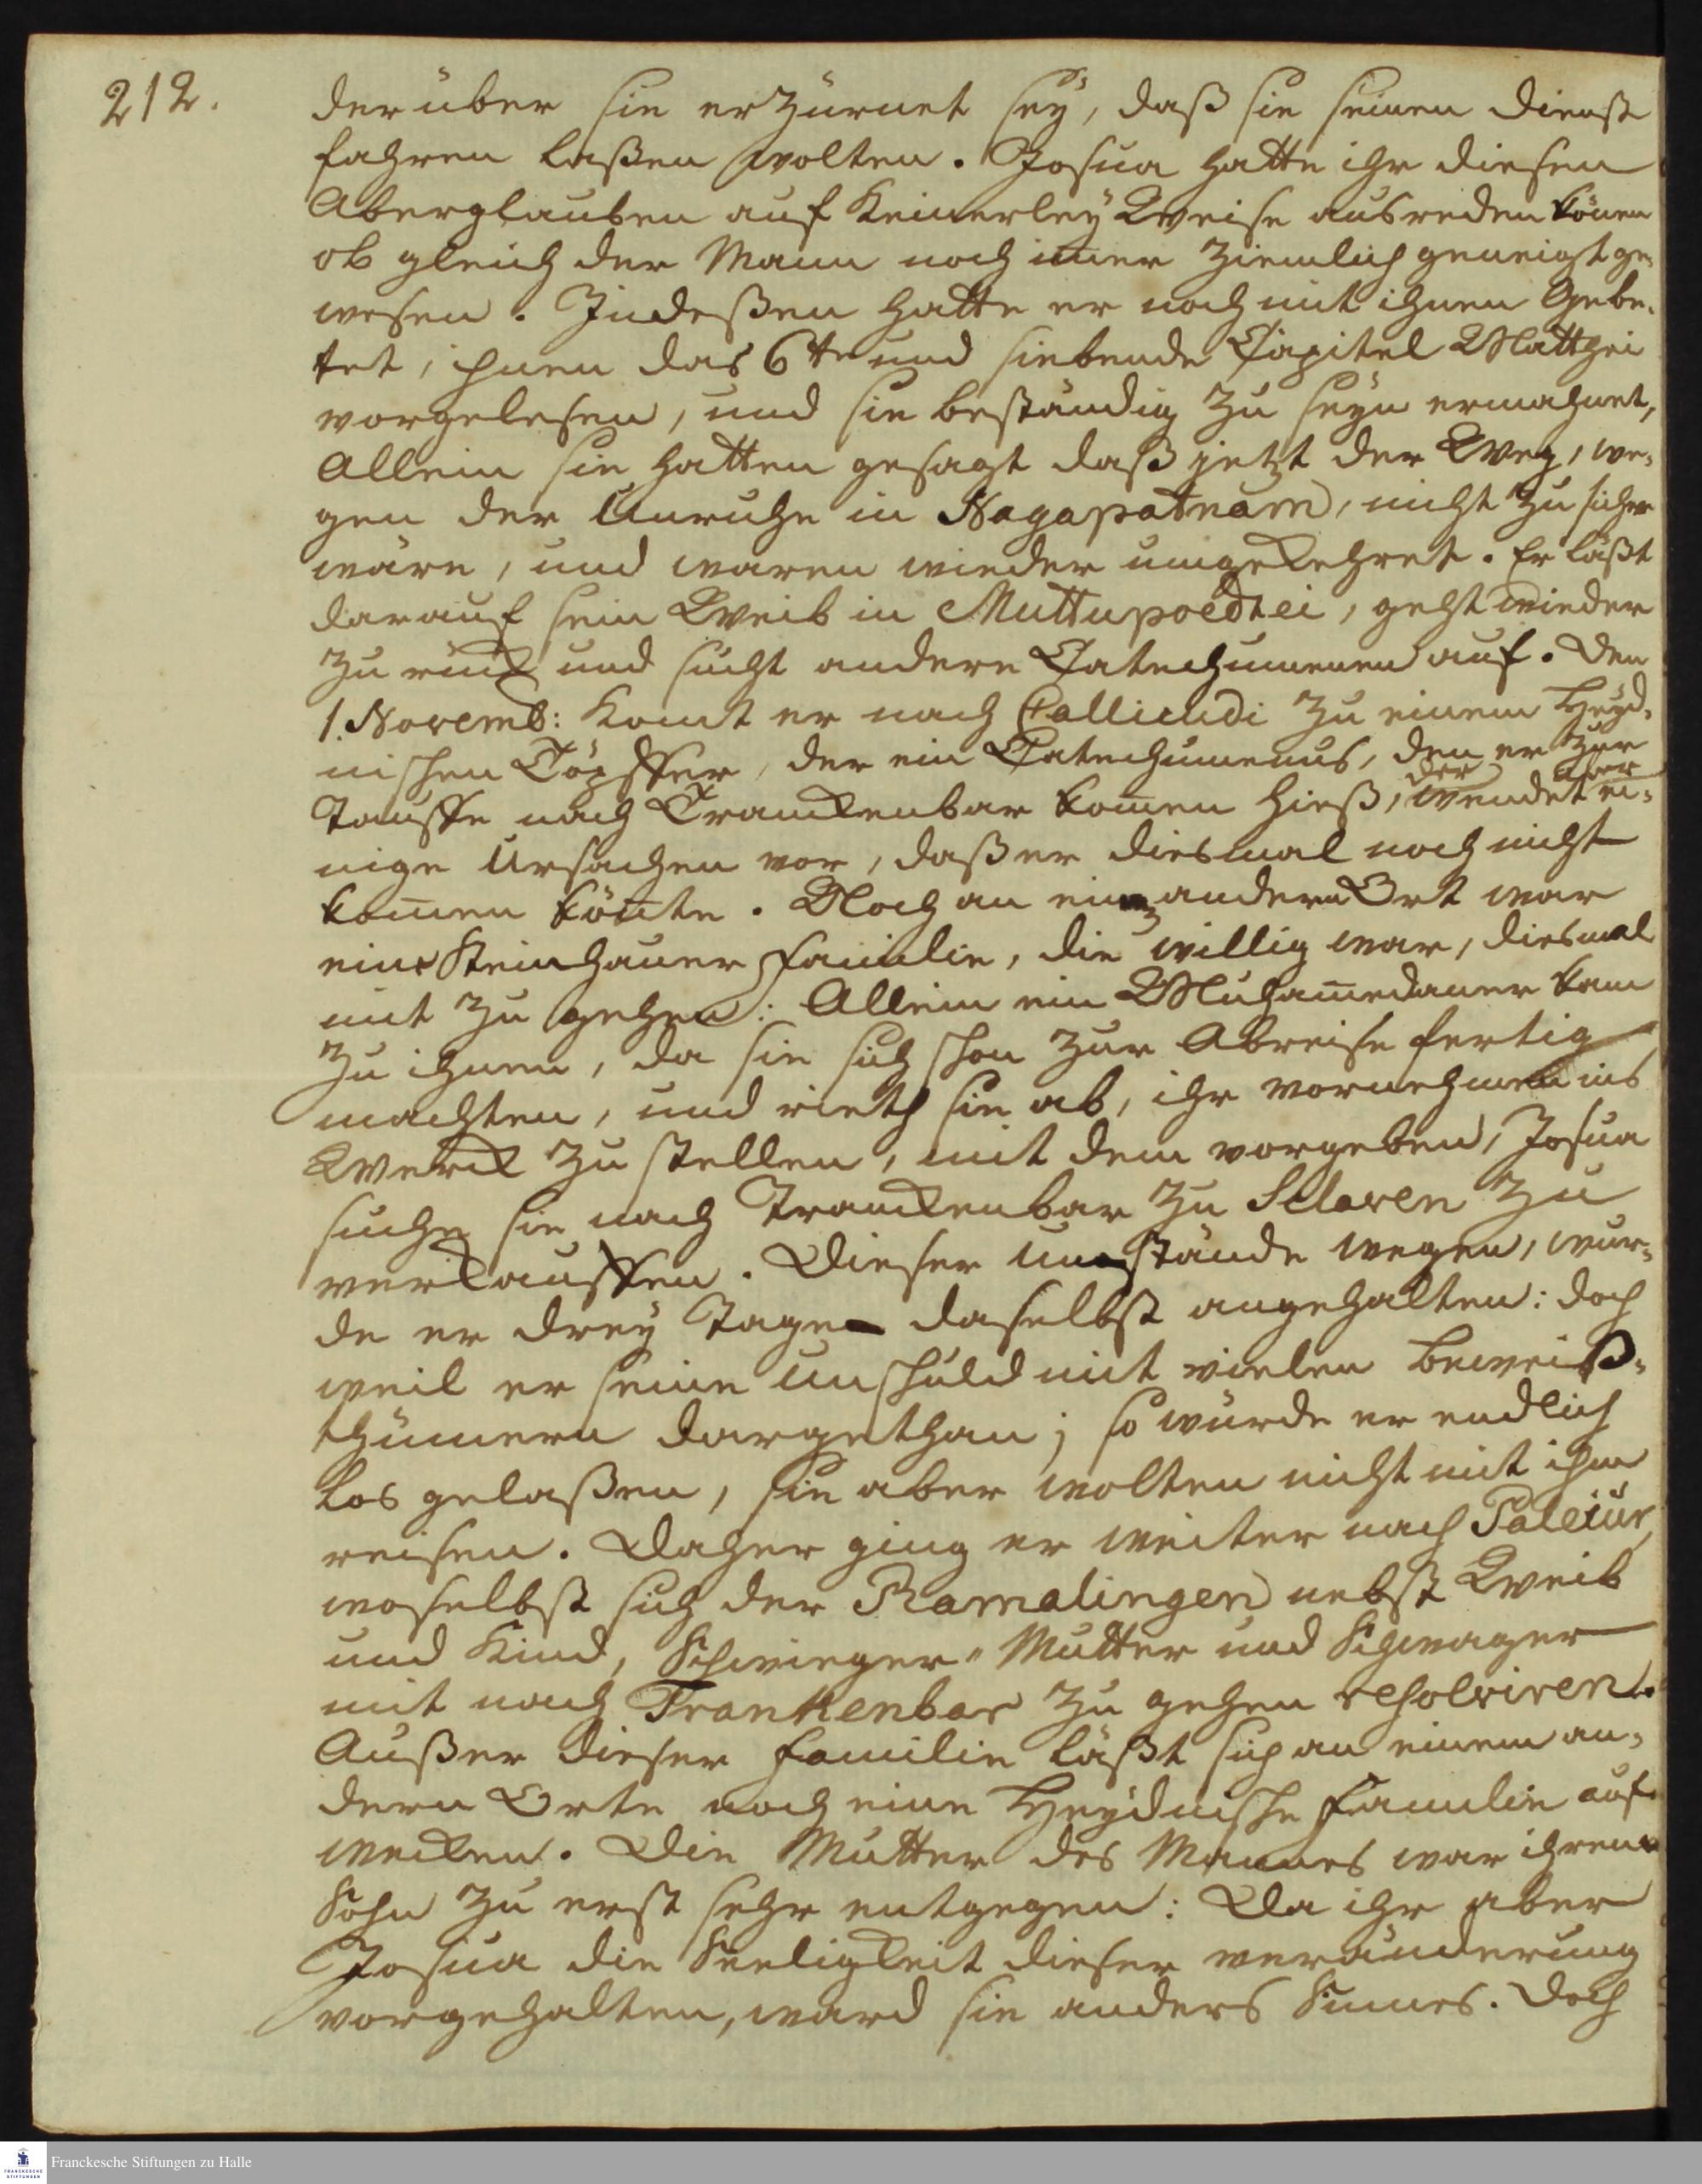 212.
der über sie erzürnet sey, daß sie seinen Dienst
fahren laßen wolten. Josua hatte ihr diesen
Aberglauben auf keinerley Weise ausreden können
ob gleich der Mann noch im̅er ziemlich geneigt ge-
wesen. Indeßen hatte er noch mit ihnen Gebe-
tet, ihnen das 6te und siebende Capitel Matthæi
vorgelesen, und sie beständig zu seyn ermahnet,
Allein sie hatten gesagt daß jetzt der Weg, we-
gen der Unruhe in Nagapatnam, nicht zu sicher
wäre, und waren wieder umgekehret. Er läßt
darauf sein Weib in Muttupoedtei, geht wieder
zurück und sucht andere Catechumenen auf. Den
1. Novemb: komt er nach Callicudi zu einem Heyd-
nischen Töpffer, der ein Catechumenus, den er zur
Tauffe nach Tranckenbar kom̅en hieß, der wendet aber ei-
nige Ursachen vor, daß er diesmal noch nicht
kom̅en kön̅te. Noch an einem andern Ort war
eine Steinhauer Familie, die willig war, diesmal
mit zu gehen: Allein ein Muham̅edaner kam
zu ihnen, da sie sich schon zur Abreise fertig
machten, und rieth sie ab, ihr vornehmen ins
Werck zu stellen, mit dem vorgeben, Josua
suche sie nach Tranckenbar zu Sclaven zu
verkauffen. Dieser umstände wegen, wur-
de er drey Tage daselbst angehalten: doch
weil er seine Unschuld mit vielen beweiß-
thümern dargethan; so wurde er endlich
los gelaßen, sie aber wolten nicht mit ihm
reisen. Daher ging er weiter nach Paleiur,
woselbst sich der Ramalingen nebst Weib
und Kind, Schwieger-Mutter und Schwager
mit nach Trankenbar zu gehen resolviren.
Außer dieser Familie läßt sich an einem an-
dern Orte noch eine Heydnische Familie auf-
wecken. Die Mutter des Mannes war ihrem
Sohn zu erst sehr entgegen: Da ihr aber
Josua die Seeligkeit dieser veränderung
vorgehalten, ward sie anders Sinnes. Doch
Franckesche Stiftungen zu Halle
FRANCKESCHE
STIFTUNGEN